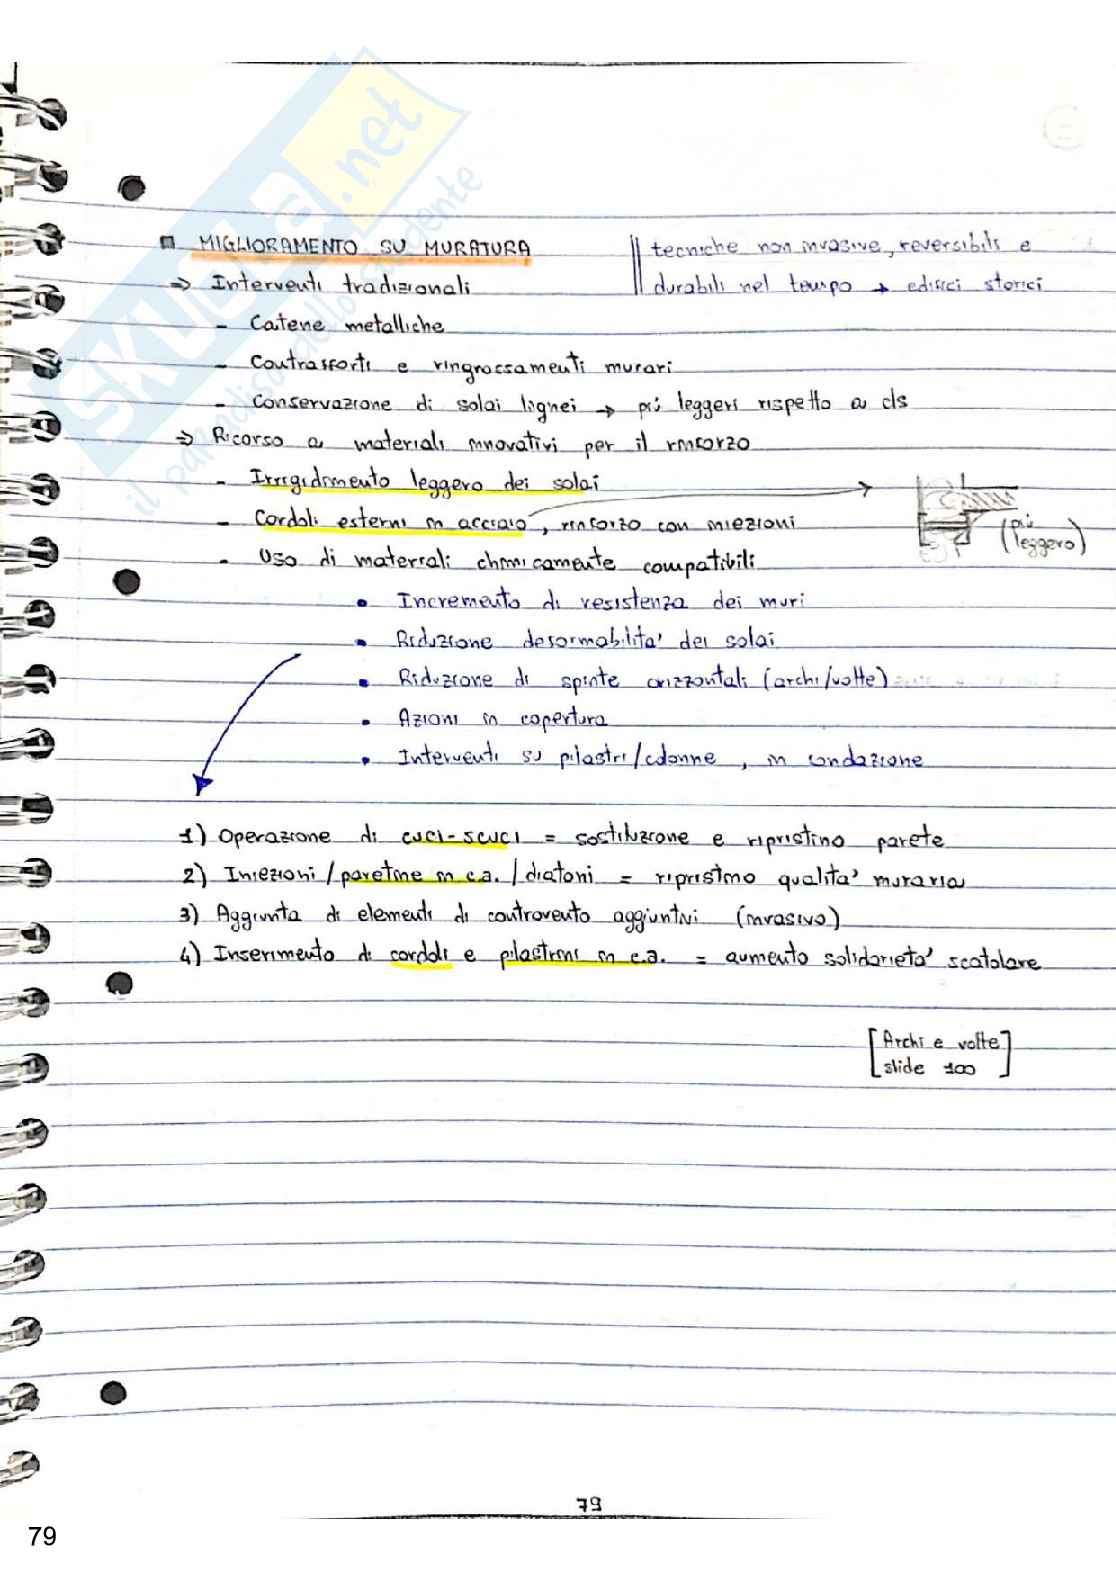 SKUOLA.net
il paradiso dello studente
MIGLIORAMENTO SU MURATURA
tecniche non invasive, reversibili e
durabili nel tempo → edifici storici
⇒ Interventi tradizionali
- Catene metalliche
- Contrafforti e ringrossamenti murari
- Conservazione di solai lignei → più leggeri rispetto a cls
⇒ Ricorso a materiali innovativi per il rinforzo
- Irrigidimento leggero dei solai
- Cordoli esterni in acciaio, rinforzo con iniezioni
(più leggero)
- Uso di materiali chimicamente compatibili
• Incremento di resistenza dei muri
• Riduzione deformabilità dei solai
• Riduzione di spinte orizzontali (archi/volte)
• Azioni in copertura
• Interventi su pilastri/colonne, in fondazione
1) Operazione di cuci-scuci = sostituzione e ripristino parete
2) Iniezioni/paretine in c.a./diatoni = ripristino qualità muraria
3) Aggiunta di elementi di controvento aggiuntivi (invasivo)
4) Inserimento di cordoli e pilastrini in c.a. = aumento solidarietà scatolare
[Archi e volte
slide 100]
79
79